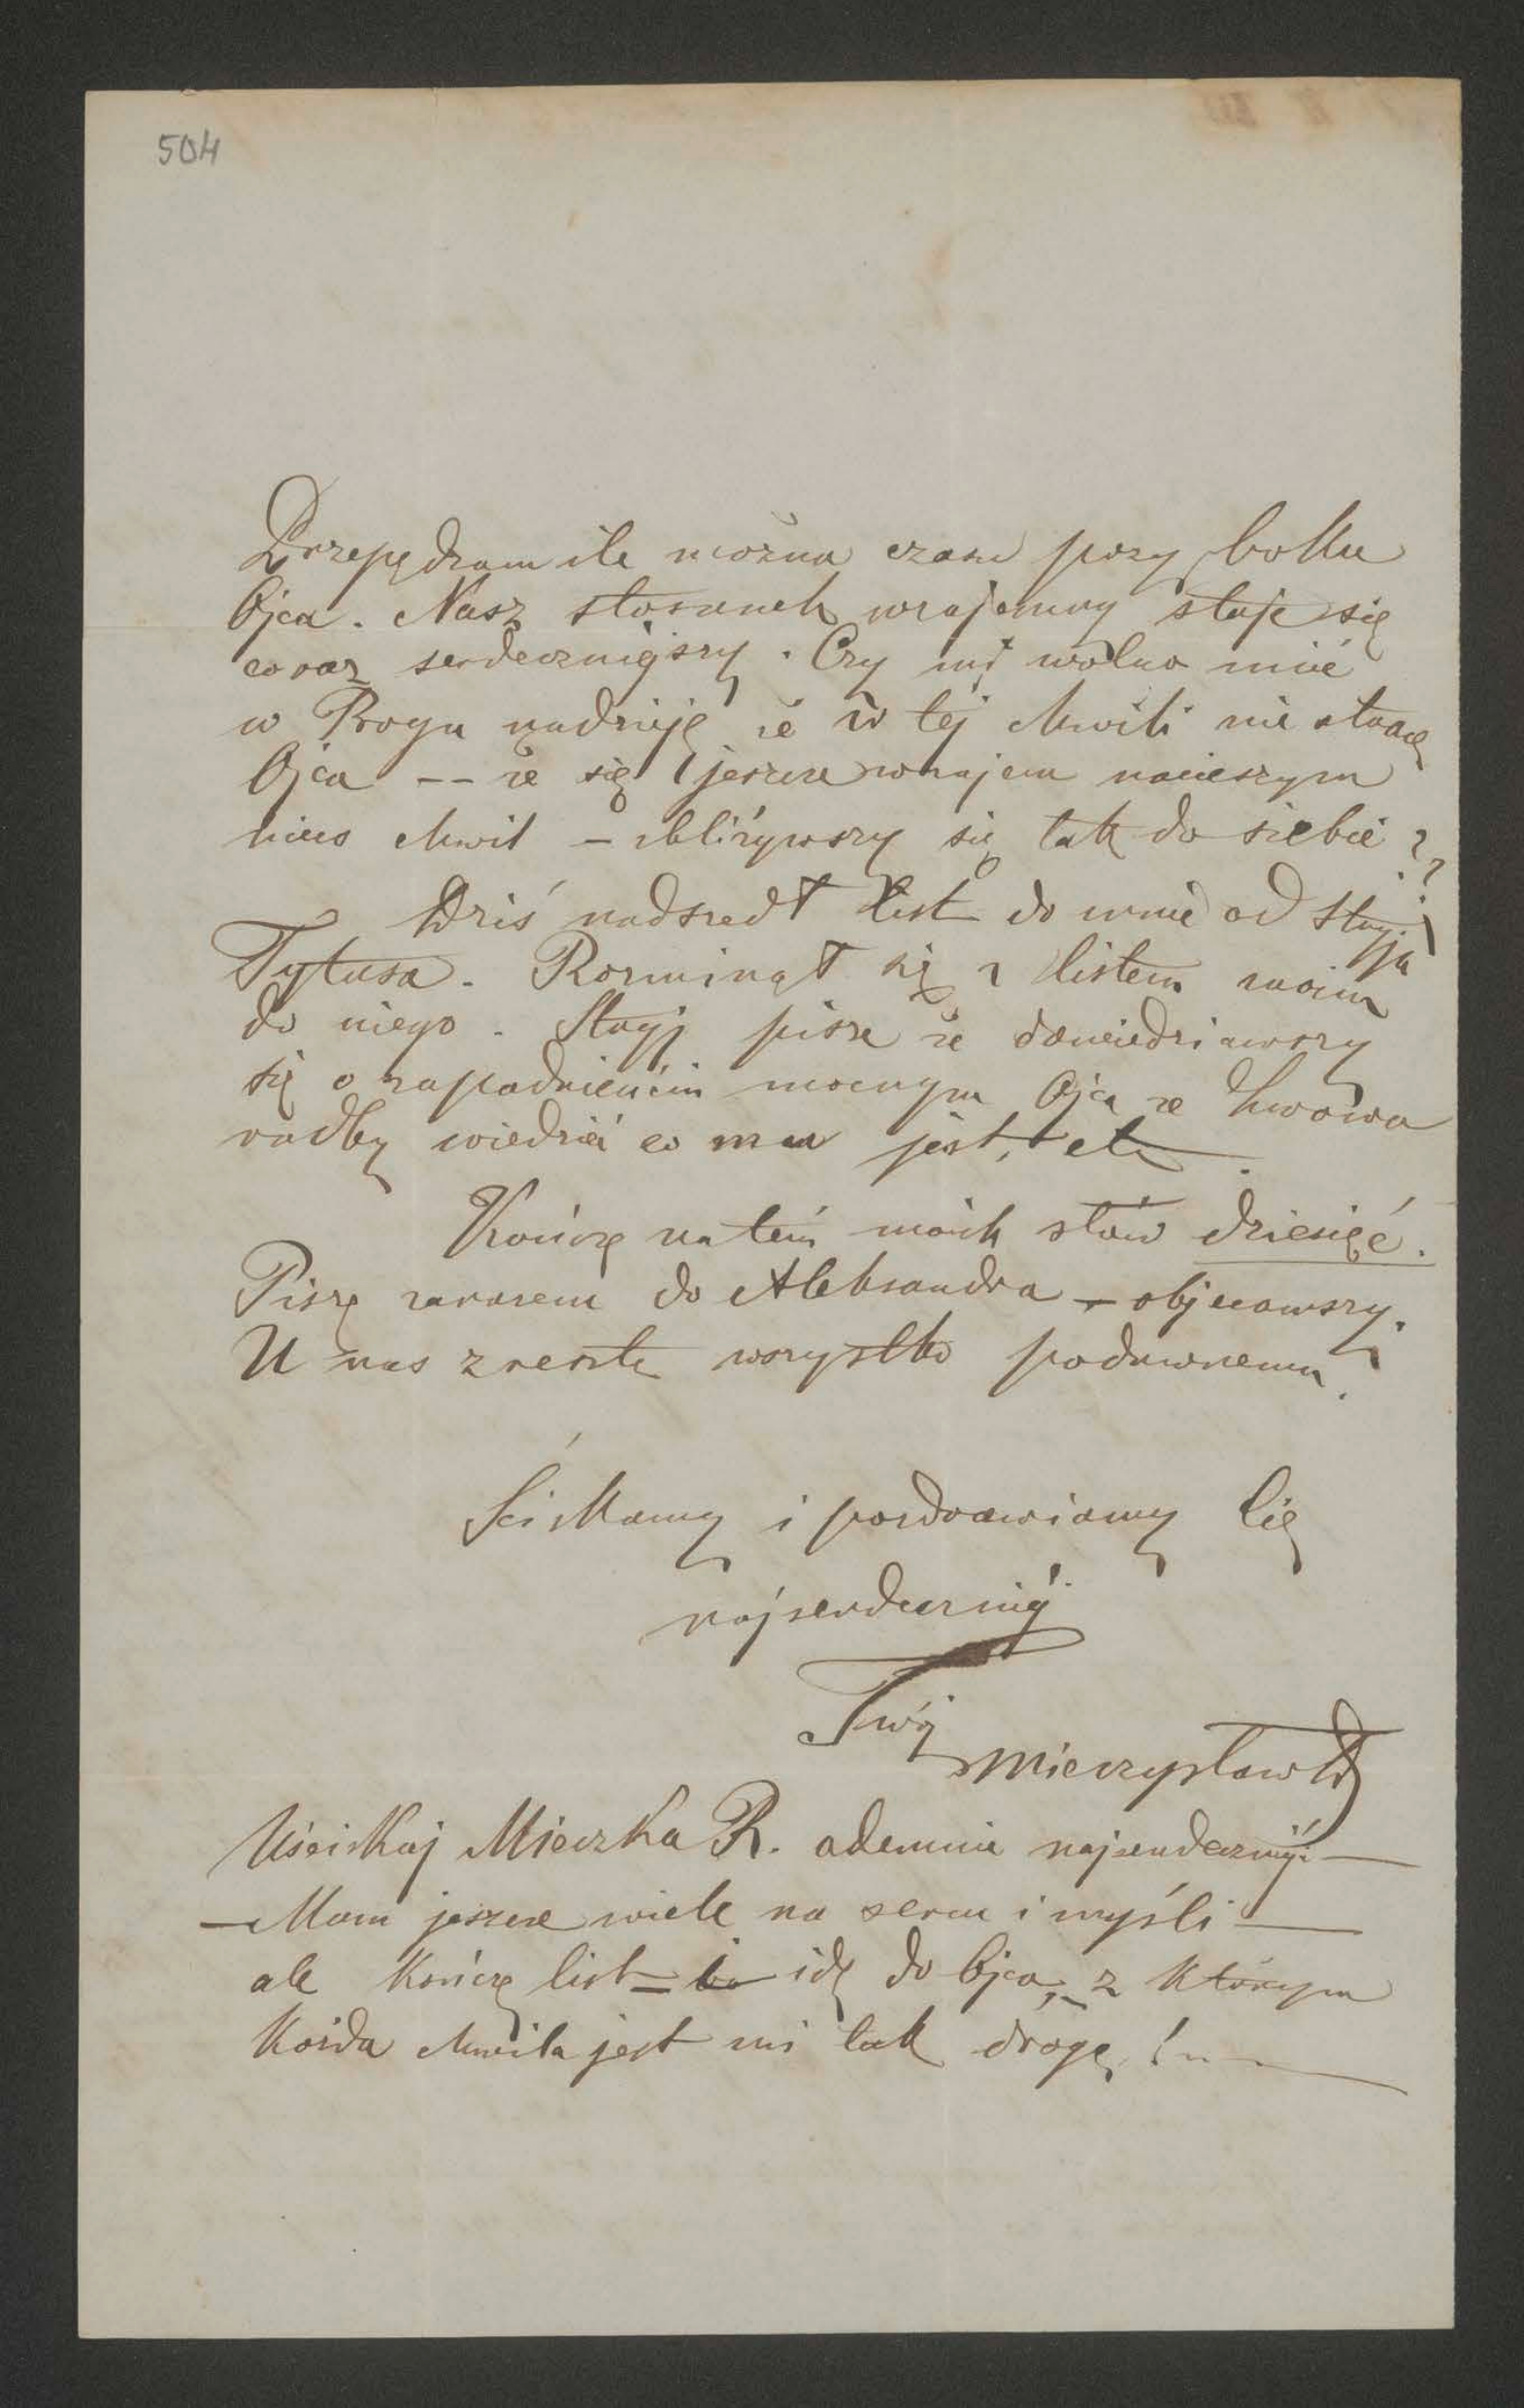 504
Przepędzam ile można czasu przy boku
Ojca. Nasz stosunek wzajemny staje się
coraz serdeczniéjszy. Czy mi wolno mieć
w Bogu nadzieję że w téj chwili nie stracę
Ojca -- że się jeszcze wzajem nacieszym
nieco chwil - zbliżywszy się tak do siebie??
Dziś nadszedł list do mnie od Stryja
Tytusa. Rozminął się z listem moim
do niego. Stryj pisze że dowiedziawszy
się o zapadnięciu mocnym Ojca ze Lwowa
radby wiedzieć co mu jest, etc.
Kończę na tém moich słów dziesięć.
Piszę zarazem do Aleksandra - objecawszy.
U nas zresztą wszystko podawnemu.
Ściskamy i pozdrawiamy Cię
najserdeczniéj
Twój
Mieczysław
Uściskaj Mieczka R. odemnie najserdeczniéj —
— Mam jeszcze wiele na sercu i myśli —
ale kończę list - bo idę do Ojca, - z którym
każda chwila jest mi tak drogą!